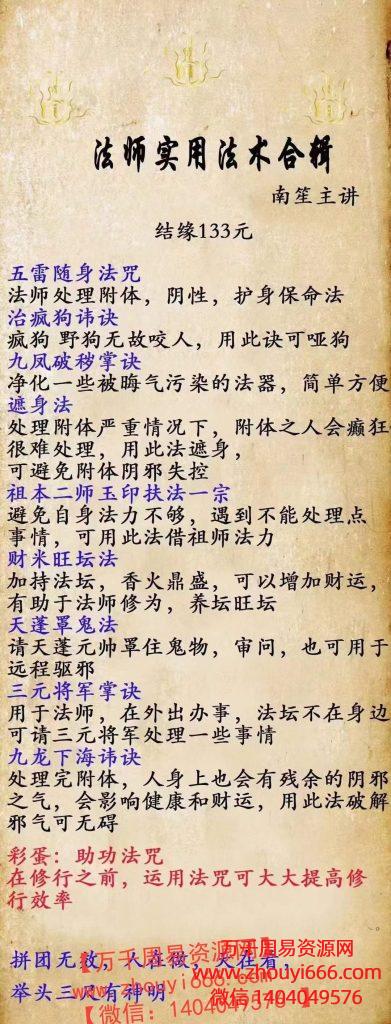 法师实用法术合辑
南笙主讲
结缘133元
五雷随身法咒
法师处理附体，阴性，护身保命法
治疯狗讳诀
疯狗 野狗无故咬人，用此诀可哑狗
九凤破秽掌诀
净化一些被晦气污染的法器，简单方便
遮身法
处理附体严重情况下，附体之人会癫狂
很难处理，用此法遮身，
可避免附体阴邪失控
祖本二师玉印扶法一宗
避免自身法力不够，遇到不能处理点
事情，可用此法借祖师法力
财米旺坛法
加持法坛，香火鼎盛，可以增加财运，
有助于法师修为，养坛旺坛
天蓬罩鬼法
请天蓬元帅罩住鬼物，审问，也可用于
远程驱邪
三元将军掌诀
用于法师，在外出办事，法坛不在身边
可请三元将军处理一些事情
九龙下海讳诀
处理完附体，人身上也会有残余的阴邪
之气，会影响健康和财运，用此法破解
邪气可无碍
彩蛋：助功法咒
在修行之前，运用法咒可大大提高修
行效率
拼团无效，人在做，天在看，
举头三尺有神明
【万千周易资源网】
www.zhouyi666.com
【微信：1404049576】
万千周易资源网
www.zhouyi666.com
微信1404049576